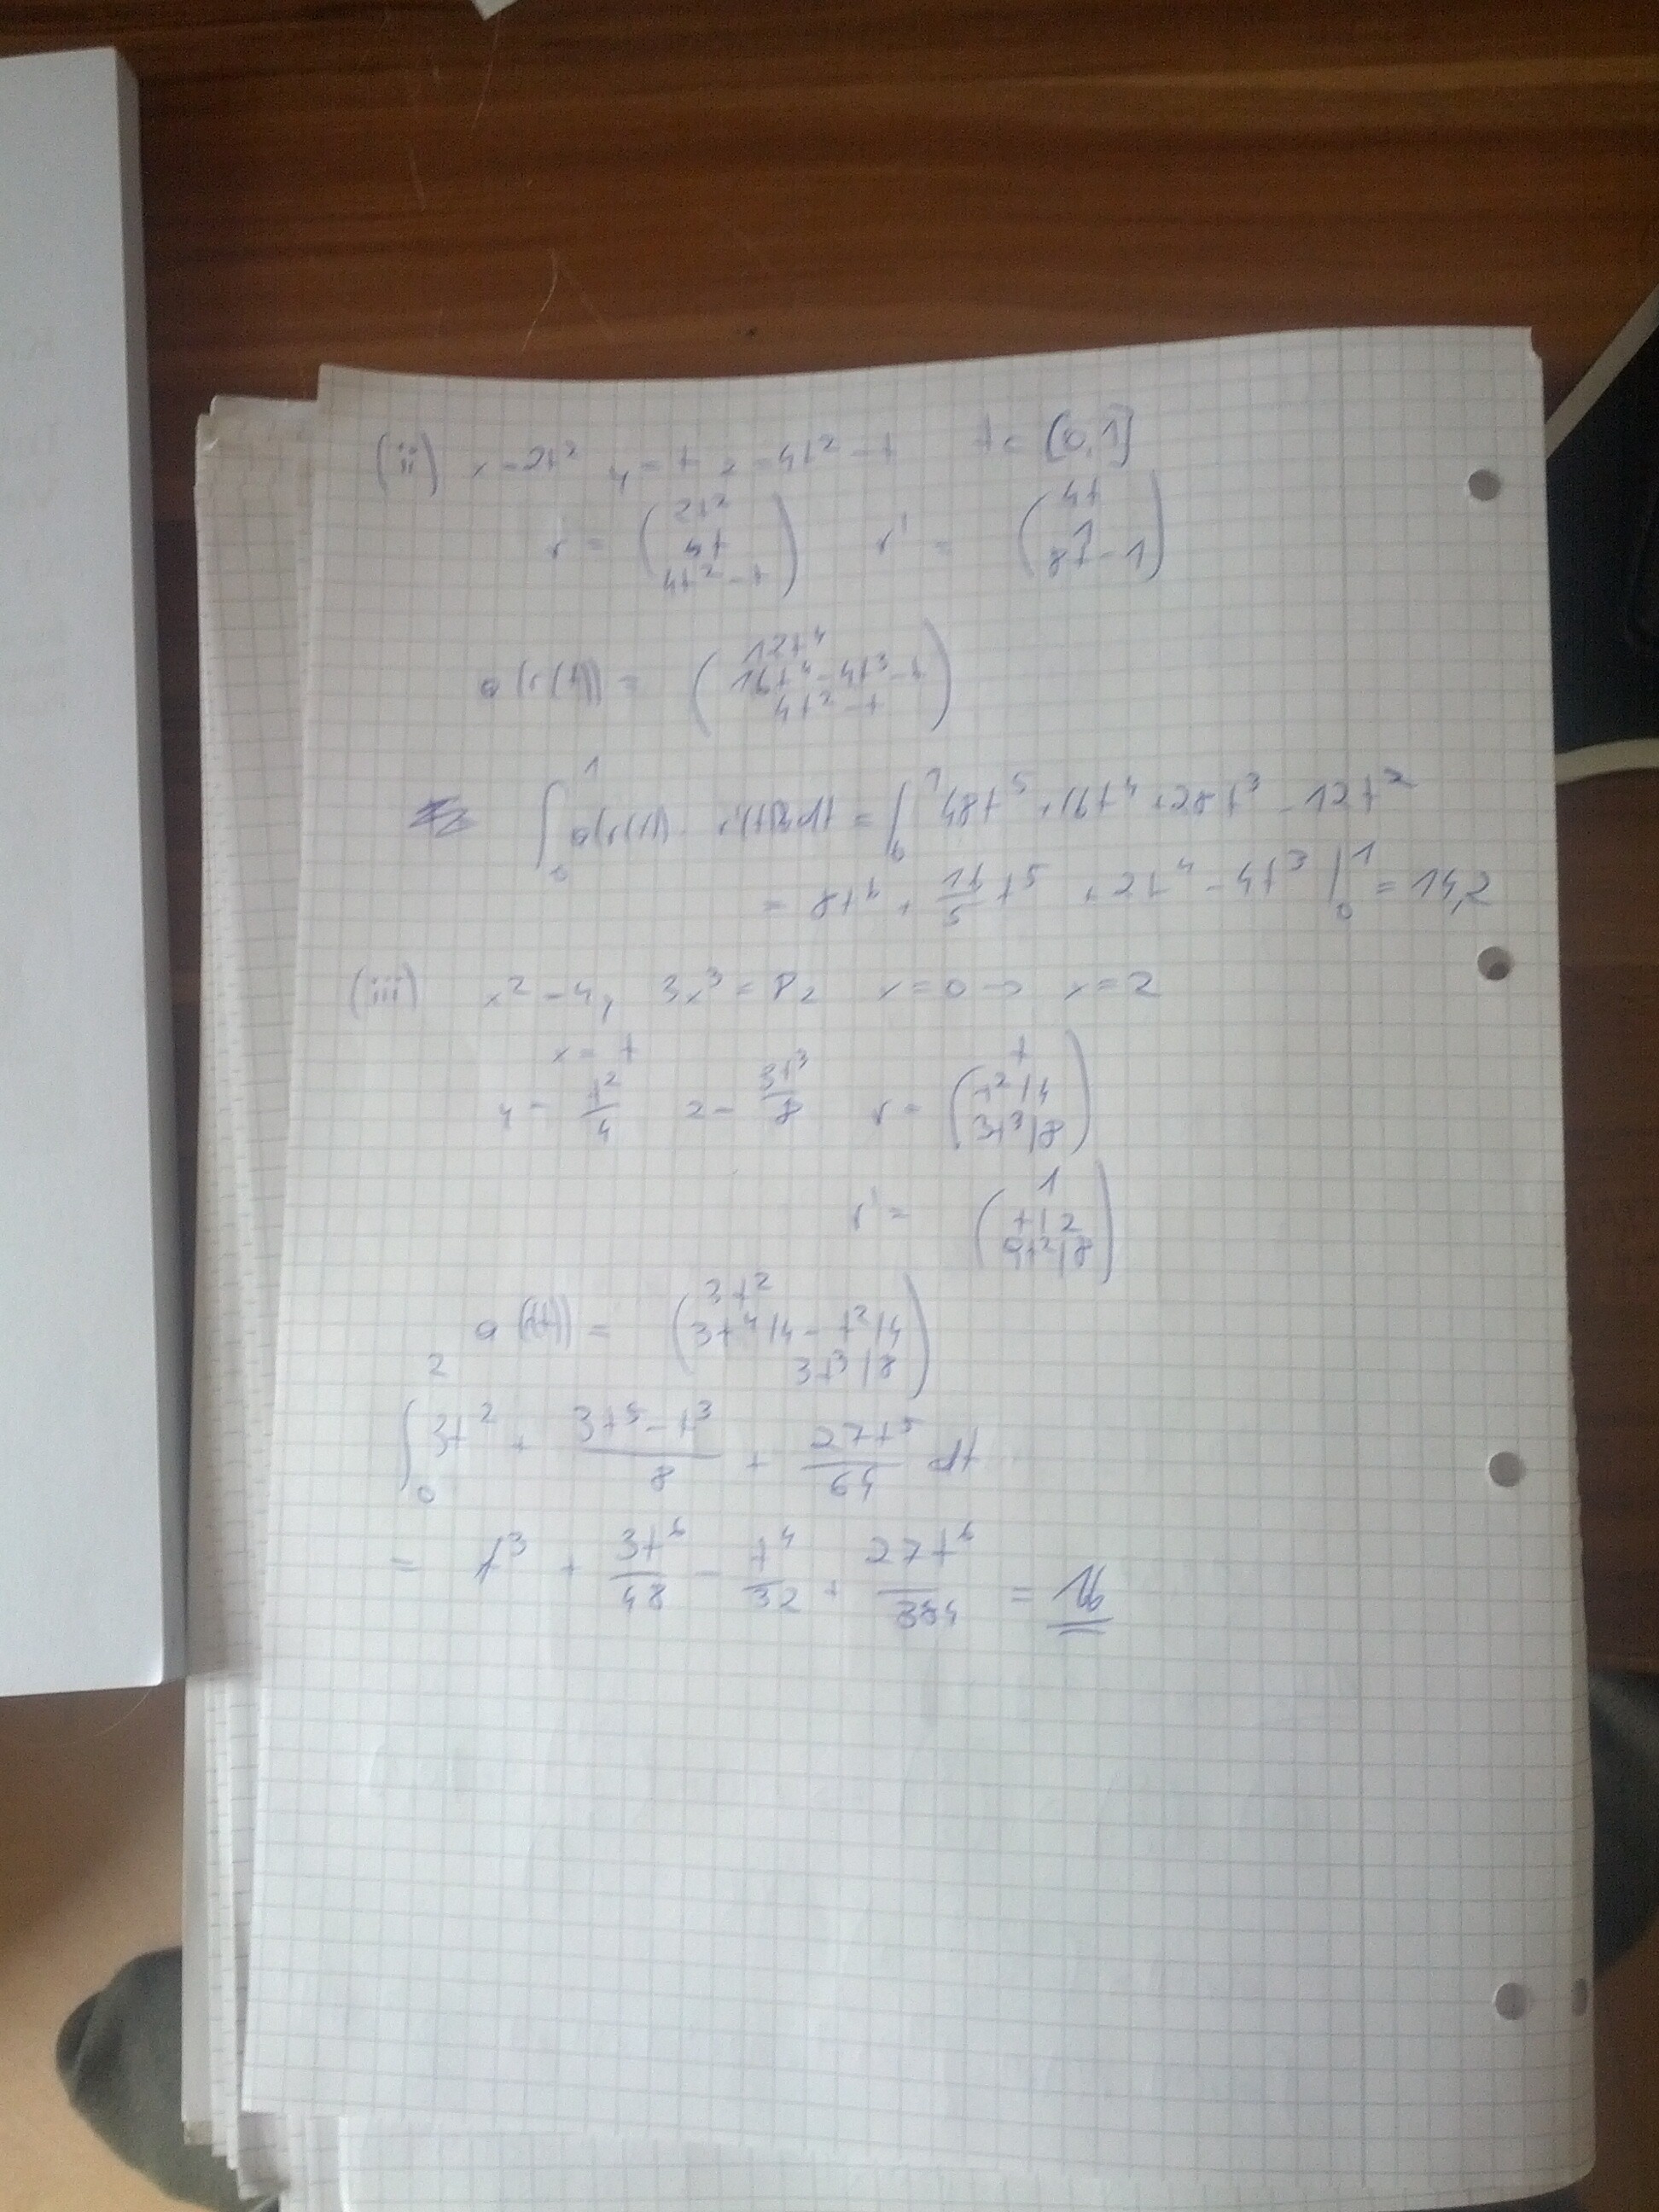 (ii) x = 2t² y = t z = 4t² - t t ∈ [0,1]
r = (2t² 4t 4t² - t) r' = (4t 1 8t - 1)
a(r(t)) = (12t⁴ 16t⁴ - 4t³ - t 4t² - t)
∫₀¹ a(r(t)) · r'(t) dt = ∫₀¹ 48t⁵ + 16t⁴ + 28t³ - 12t²
= 8t⁶ + 16/5 t⁵ + 2t⁴ - 4t³ |₀¹ = 14,2
(iii) x² = 4y 3x³ = 8z x = 0 → x = 2
x = t
y = t²/4 z = 3t³/8 r = (t t²/4 3t³/8)
r' = (1 t/2 9t²/8)
a(r(t)) = (3t² 3t⁴/4 - t²/4 3t³/8)
∫₀² 3t² + (3t⁵ - t³)/8 + 27t⁵/64 dt
= t³ + 3t⁶/48 - t⁴/32 + 27t⁶/384 = 16